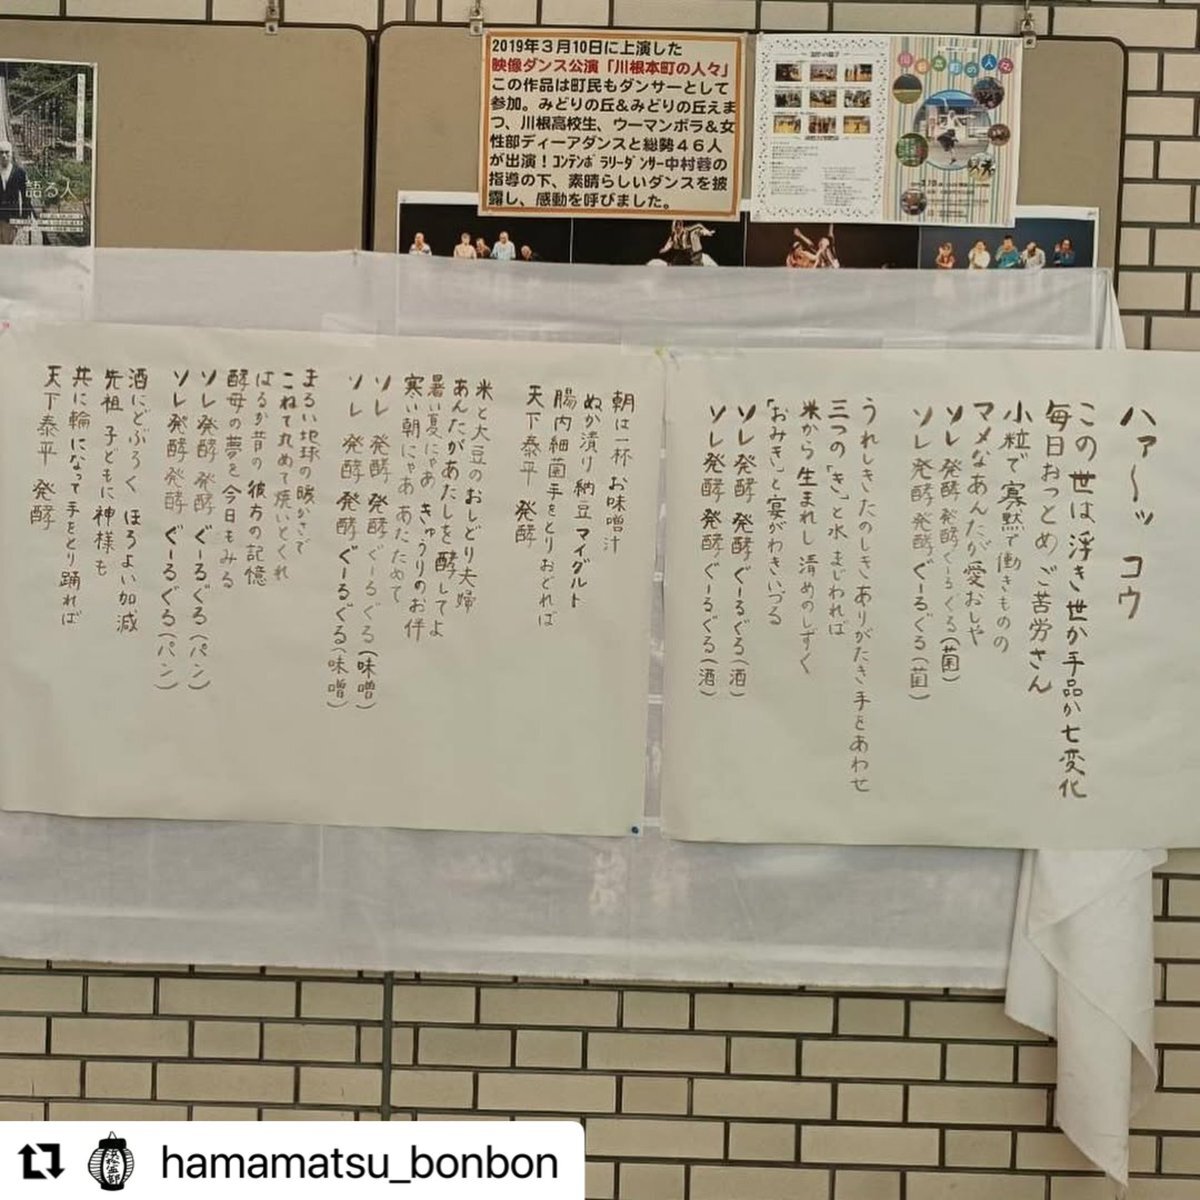 2019年3月10日に上演した
映像ダンス公演「川根本町の人々」
この作品は町民もダンサーとして
参加。みどりの丘&みどりの丘えま
つ、川根高校生、ウーマンボラ&女
性部ディーアダンスと総勢46人
が出演!コンテンポラリーダンサー中村蓉の
指導の下、素晴らしいダンスを披
露し、感動を呼びました。
川根本町の人々
語る人
ハァ〜ッ コウ
この世は浮き世か手品か七変化
毎日おつとめご苦労さん
小粒で寡黙で働きものの
マメなあんたが愛おしや
ソレ発酵 発酵ぐーるぐる(菌)
ソレ発酵 発酵ぐーるぐる(菌)
うれしきたのしきありがたき手をあわせ
三つの「き」と水 まじわれば
米から生まれし 清めのしずく
「おみき」と宴がわきいづる
ソレ発酵 発酵ぐーるぐる(酒)
ソレ発酵 発酵ぐーるぐる(酒)
朝は一杯 お味噌汁
ぬか漬け 納豆 マイグルト
腸内細菌手をとりおどれば
天下泰平 発酵
米と大豆のおしどり夫婦
あんたがあたしを醸してよ
暑い夏にゃあ きゅうりのお伴
寒い朝にゃあ あたためて
ソレ 発酵 発酵ぐーるぐる(味噌)
ソレ 発酵 発酵ぐーるぐる(味噌)
まるい地球の暖かさで
こねて丸めて焼いとくれ
はるか昔の彼方の記憶
酵母の夢を今日もみる
ソレ発酵 発酵 ぐーるぐる(パン)
ソレ発酵 発酵 ぐーるぐる(パン)
酒にどぶろく ほろよい加減
先祖 子どもに神様も
共に輪になって手をとり踊れば
天下泰平 発酵
hamamatsu_bonbon